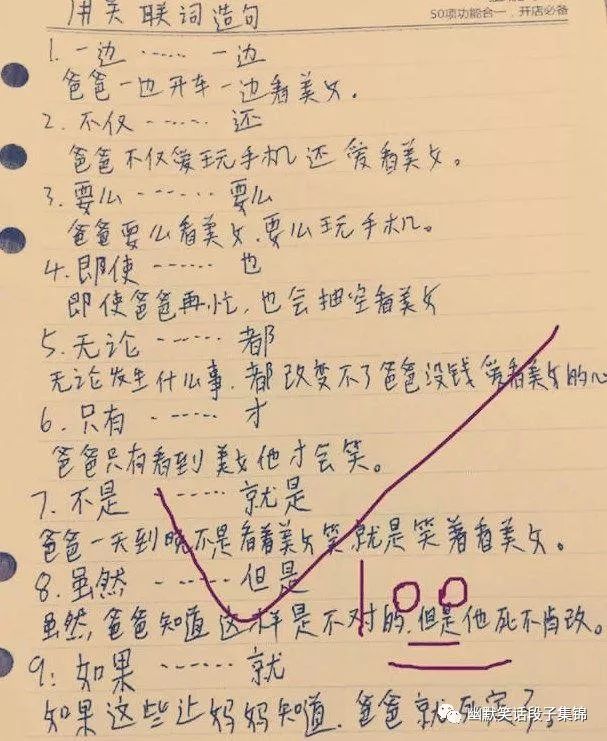 用关联词造句
50项功能合一，开店必备
1. 一边 ...... 一边
爸爸一边开车一边看美女.
2. 不仅 ...... 还
爸爸不仅爱玩手机还爱看美女。
3. 要么 ...... 要么
爸爸要么看美女.要么玩手机。
4. 即使 ...... 也
即使爸爸再忙,也会抽空看美女
5. 无论 ...... 都
无论发生什么事.都改变不了爸爸没钱爱看美女的心
6. 只有 ...... 才
爸爸只有看到美女他才会笑。
7. 不是 ...... 就是
爸爸一天到晚不是看着美女笑就是笑着看美女。
8. 虽然 ...... 但是
虽然,爸爸知道这样是不对的.但是他死不肯改。
100
9: 如果 ...... 就
如果这些让妈妈知道.爸爸就死定了
幽默笑话段子集锦